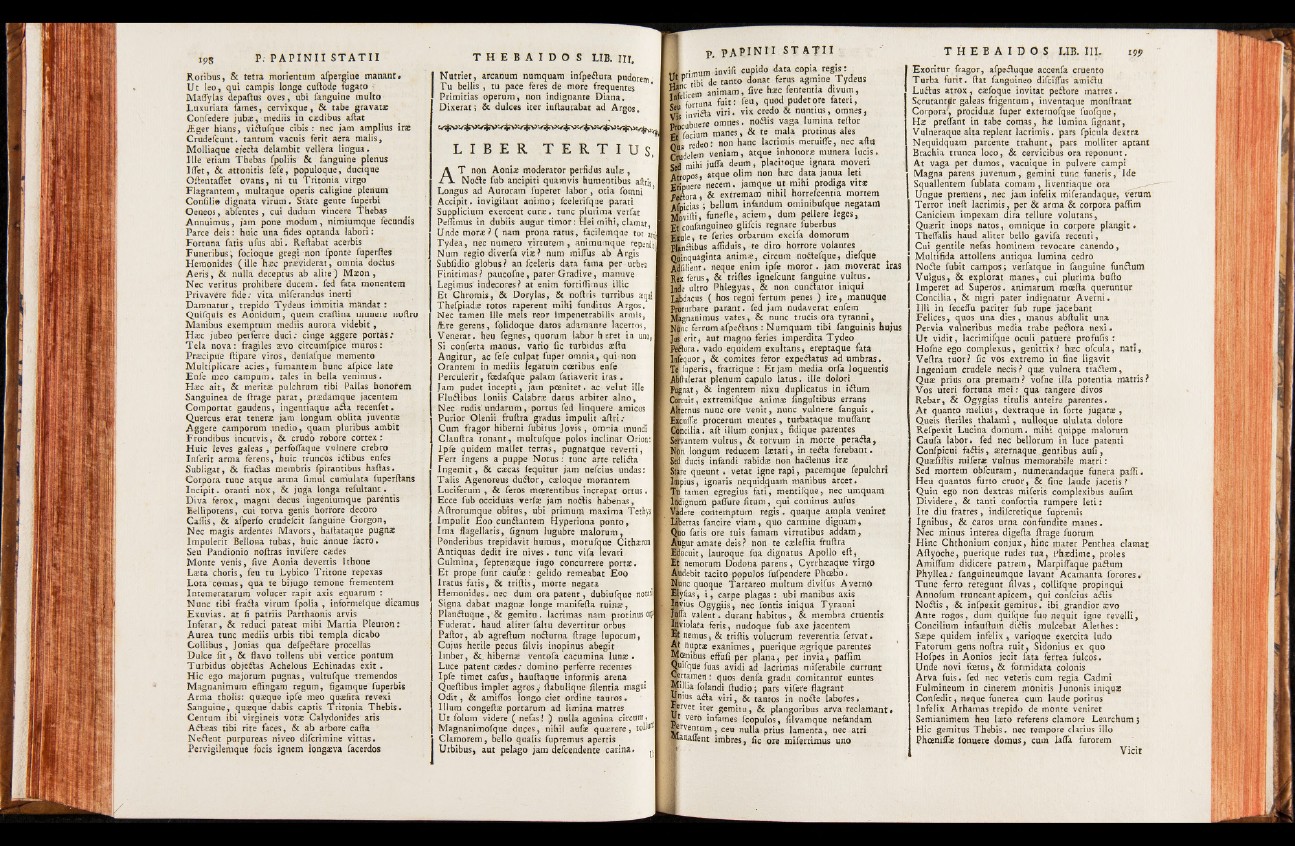 198 P. PAPINII STATII
Roribus, & tetra morientum aspergine manant.
Ut leo, qui campis longe custode fugato
Massylas depastus oves, ubi sanguine multo
Luxuriata fames, cervixque, & tabe gravatæ
Consedere jubæ, mediis in cædibus astat
Æger hians, victusque cibis : nec jam amplius iræ
Crudescunt. tantum vacuis ferit aera malis,
Molliaque ejecta delambit vellera lingua.
Ille etiam Thebas spoliis & sanguine plenus
Isset, & attonitis sese, populoque, ducique
Ostentasset ovans, ni tu Tritonia virgo
Flagrantem, multaque operis caligine plenum
Consilio dignata virum. State gente superbi
Oeneos, absentes, cui dudum vincere Thebas
Annuimus, jam pone modum, nimiumque secundis
Parce deis: huic una fides optanda labori:
Fortuna satis usus abi. Restabat acerbis
Funeribus, socioque gregi non sponte superstes
Hemonides (ille hæc præviderat, omnia doctus
Aeris, & nulla deceptus ab alite) Mæon,
Nec veritus prohibere ducem. sed fata monentem
Privavere fide: vita miserandus inerti
Damnatur, trepido Tydeus immitia mandat :
Quisquis es Aonidum, quem crastina munere nostro
Manibus exemptum mediis aurora videbit,
Hæc jubeo perferre duci: cinge aggere portas:
Tela nova: fragiles ævo circumspice muros:
Præcipue stipare viros, densasque memento
Multiplicare acies, fumantem hunc aspice late
Ense meo campum. tales in bella venimus.
Hæc ait, & meritæ pulchrum tibi Pallas honorem
Sanguinea de strage parat, prædamque jacentem
Comportat gaudens, ingentiaque acta recenset.
Quercus erat teneræ jam longum oblita juventæ
Aggere camporum medio, quam pluribus ambit
Frondibus incurvis, & crudo robore cortex:
Huic leves galeas, perfossaque vulnere crebro
Inserit arma ferens, huic truncos ictibus enses
Subligat, & fractas membris spirantibus hastas.
Corpora tunc atque arma simul cumulata superstans
Incipit. oranti nox, & juga longa resultant.
Diva ferox, magni decus ingeniumque parentis
Bellipotens, cui torva genis horrore decoro
Cassis, & asperso crudescit sanguine Gorgon,
Nec magis ardentes Mavors, hastataque pugnæ
Impulerit Bellona tubas, huic annue sacro.
Seu Pandionio nostras invisere cædes
Monte venis, sive Aonia devertis Ithone
Læta choris, seu tu Lybico Tritone repexas
Lota comas, qua te bijugo temone frementem
Intemeratarum volucer rapit axis equarum :
Nunc tibi fracta virum spolia, informesque dicamus
Exuvias. at si patriis Parthaoniis arvis
Inferar, & reduci pateat mihi Martia Pleuron:
Aurea tunc mediis urbis tibi templa dicabo
Collibus, Jonias qua despectare procellas
Dulce sit, & flavo tollens ubi vertice pontum
Turbidus objectas Achelous Echinadas exit.
Hic ego majorum pugnas, vultusque tremendos
Magnanimum effingam regum, figamque superbis
Arma tholis: quæque ipse meo quæsita revexi
Sanguine, quæque dabis captis Tritonia Thebis.
Centum ibi virgineis votæ Calydonides aris
Actæas tibi rite faces, & ab arbore casta
Nectent purpureas niveo discrimine vittas.
Pervigilemque focis ignem longæva sacerdos
THEBAIDOS LIB. III.
Nutriet, arcanum numquam inspectura pudorem.
Tu bellis, tu pace feres de more frequentes
Primitias operum, non indignante Diana.
Dixerat; & dulces iter instaurabat ad Argos.
LIBER TERTIUS.
AT non Aoniæ moderator perfidus aulæ,
Nocte sub ancipiti quamvis humentibus astris,
Longus ad Auroram superet labor, otia somni
Accipit. invigilant animo; scelerisque parati
Supplicium exercent curæ. tunc plurima versat
Pessimus in dubiis augur timor: Hei mihi, clamat,
Unde moræ? (nam prona ratus, facilemque tot
Tydea, nec numero virtutem, animumque
Num regio diversa viæ? num missus ab Argis
Subsidio globus? an sceleris data fama per urbes
Finitimas? paucosne, pater Gradive, manuve
Legimus indecores? at enim fortissimus illic
Et Chromis, & Dorylas, & nostris turribus
Thespiadæ totos raperent mihi funditus Argos.
Nec tamen ille meis reor impenetrabilis armis,
Ære gerens, solidoque datos adamante lacertos,
Venerat. heu segnes, quorum labor hæret in uno,
Si conserta manus. vario sic turbidus æstu
Angitur, ac sese culpat super omnia, qui non
Orantem in mediis legatum coetibus ense
Perculerit, foedasque palam satiaverit iras.
Jam pudet incepti, jam poenitet. ac velut ille
Fluctibus Ioniis Calabræ datus arbiter alno,
Nec rudis undarum, portus sed linquere amicos
Purior Olenii frustra gradus impulit astri:
Cum fragor hiberni subitus Jovis, omnia mundi
Claustra tonant, multusque polos inclinat Orion:
Ipse quidem mallet terras, pugnatque reverti,
Fert ingens a puppe Notus: tunc arte relicta
Ingemit, & cæcas sequitur jam nescius undas:
Talis Agenoreus ductor, cæloque morantem
Luciferum, & seros moerentibus increpat ortus.
Ecce sub occiduas versæ jam noctis habenas,
Astrorumque obitus, ubi primum maxima Tethys
Impulit Eoo cunctantem Hyperiona ponto,
Ima flagellatis, signum lugubre malorum,
Ponderibus trepidavit humus, motusque Cithæron
Antiquas dedit ire nives. tunc visa levari
Culmina, septenæque jugo concurrere portæ.
Et prope sunt causæ: gelido remeabat Eoo
Iratus fatis, & tristis, morte negata
Hemonides. nec dum ora patent, dubiusque notari
Signa dabat magnæ longe manifesta ruinæ,
Planctuque, & gemitu. lacrimas nam protinus
Fuderat. haud aliter saltu devertitur orbus
Pastor, ab agrestum nocturna strage luporum,
Cujus herile pecus silvis inopinus abegit
Imber, & hibernæ ventosa cacumina lunæ.
Luce patent cædes: domino perferre recentes
Ipse timet casus, haustaque informis arena
Questibus implet agros, stabulique silentia magni
Odit, & amissos longo ciet ordine tauros.
Illum congestæ portarum ad limina matres
Ut solum videre (nefas!) nulla agmina circum,
Magnanimosque duces, nihil ausæ quærere,
Clamorem, bello qualis supremus apertis
Urbibus, aut pelago jam descendente carina.
P. PAPINII STATII
Ut primum invisi cupido data copia regis:
Hanc tibi de tanto donat ferus agmine Tydeus
Infelicem animam, sive hæc sententia divum,
Seu fortuna fuit: seu, quod pudet ore fateri,
Vis invicta viri. vix credo & nuntius, omnes,
Procubuere omnes. noctis vaga lumina testor
Et socium manes, & te mala protinus ales
Qua redeo: non hanc lacrimis meruisse, nec astu
Crudelem veniam, atque inhonoræ munera lucis.
Sed mihi jussa deum, placitoque ignara moveri
Atropos, atque olim non hæc data janua leti
Eripuere necem. jamque ut mihi prodiga vitæ
Pectora, & extremam nihil horrescentia mortem
Aspicias; bellum infandum ominibusque negatam
Movisti, funeste, aciem, dum pellere leges,
Et consanguineo gliscis regnare superbus
Exule, te series orbarum excisa domorum
Planctibus assiduis, te diro horrore volantes
Quinquaginta animæ, circum noctesque, diesque
Adsilient. neque enim ipse moror. jam moverat iras
Rex ferus, & tristes ignescunt sanguine vultus.
Inde ultro Phlegyas, & non cunctator iniqui
Labdacus (hos regni ferrum penes) ire, manuque
Proturbare parant. sed jam nudaverat ensem
Magnanimus vates, & nunc trucis ora tyranni,
Nunc ferrum aspectans: Numquam tibi sanguinis hujus
Jus erit, aut magno feries imperdita Tydeo
Pectora. vado equidem exultans, ereptaque fata
Insequor, & comites feror expectatus ad umbras.
Te superis, fratrique: Et jam media orsa loquentis
Abstulerat plenum capulo latus. ille dolori
Pugnat, & ingentem nixu duplicatus in ictum
Corruit, extremisque animæ singultibus errans
Alternus nunc ore venit, nunc vulnere sanguis.
Excussæ procerum mentes, turbataque mussant
Concilia. ast illum conjux, fidique parentes
Servantem vultus, & torvum in morte peracta,
Non longum reducem lætati, in tecta ferebant.
Sed ducis infandi rabidæ non hactenus iræ
Stare queunt. vetat igne rapi, pacemque sepulchri
Impius, ignaris nequidquam manibus arcet.
Tu tamen egregius fati, mentisque, nec umquam
Indignum passure situm, qui cominus ausus
Vadere contemptum regis. quaque ampla veniret
Libertas sancire viam, quo carmine dignam,
Quo satis ore tuis famam virtutibus addam,
Augur amate deis? non te cælestia frustra
Edocuit, lauroque sua dignatus Apollo est,
Et nemorum Dodona parens, Cyrrhæaque virgo
Audebit tacito populos suspendere Phœbo.
Nunc quoque Tartareo multum divisus Averno
Elysias, i, carpe plagas: ubi manibus axis
Invius Ogygiis, nec sontis iniqua Tyranni
Jussa valent. durant habitus, & membra cruentis
Inviolata feris, nudoque sub axe jacentem
Et nemus, & tristis volucrum reverentia servat.
At nuptæ exanimes, puerique ægrique parentes
Moenibus effusi per plana, per invia, passim
Quisque suas avidi ad lacrimas miserabile currunt
Certamen: quos densa gradu comitantur euntes
Millia solandi studio; pars visere flagrant
Unius acta viri, & tantos in nocte labores.
Fervet iter gemitu, & plangoribus arva reclamant.
Ut vero infames scopulos, silvamque nefandam
Perventum, ceu nulla prius lamenta, nec atri
Manassent imbres, sic ore miserrimus uno
THEBAIDOS LIB. III. 199
Exoritur fragor, aspectuque accensa cruento
Turba furit. stat sanguineo discissus amictu
Luctus atrox, cæsoque invitat pectore matres.
Scrutantur galeas frigentum, inventaque monstrant
Corpora, prociduæ super externosque suosque,
Hæ pressant in tabe comas, hæ lumina signant,
Vulneraque alta replent lacrimis. pars spicula dextra
Nequidquam parcente trahunt, pars molliter aptant
Brachia trunca loco, & cervicibus ora reponunt.
At vaga per dumos, vacuique in pulvere campi
Magna parens juvenum, gemini tunc funeris, Ide
Squallentem sublata comam, liventiaque ora
Ungue premens, nec jam infelix miserandaque, verum
Terror inest lacrimis, per & arma & corpora passim
Caniciem impexam dira tellure volutans,
Quærit inops natos, omnique in corpore plangit.
Thessalis haud aliter bello gavisa recenti,
Cui gentile nefas hominem revocare canendo,
Multifida attollens antiqua lumina cedro
Nocte subit campos; versatque in sanguine functum
Vulgus, & explorat manes, cui plurima busto
Imperet ad Superos. animarum mœsta queruntur
Concilia, & nigri pater indignatur Averni.
Illi in secessu pariter sub rupe jacebant
Felices, quos una dies, manus abstulit una
Pervia vulneribus media trabe pectora nexi.
Ut vidit, lacrimisque oculi patuere profusis:
Hosne ego complexus, genitrix? hæc oscula, nati,
Vestra tuor? sic vos extremo in fine ligavit
Ingenium crudele necis? quæ vulnera tractem,
Quæ prius ora premam? vosne illa potentia matris?
Vos uteri fortuna mei: qua tangere divos
Rebar, & Ogygias titulis anteire parentes.
At quanto melius, dextraque in sorte jugatæ,
Queis steriles thalami, nulloque ululata dolore
Respexit Lucina domum. mihi quippe malorum
Causa labor. sed nec bellorum in luce patenti
Conspicui factis, æternaque gentibus ausi,
Quæsistis miseræ vulnus memorabile matri:
Sed mortem obscuram, numerandaque funera passi.
Heu quantus furto cruor, & sine laude jacetis?
Quin ego non dextras miseris complexibus ausim
Dividere, & tanti consortia rumpere leti:
Ite diu fratres, indiscretique supremis
Ignibus, & caros urna confundite manes.
Nec minus interea digesta strage suorum
Hinc Chthonium conjux, hinc mater Penthea clamat
Astyoche, puerique rudes tua, Phædime, proles
Amissum didicere patrem, Marpissaque pactum
Phyllea: sanguineumque lavant Acamanta sorores.
Tunc ferro retegunt silvas, collisque propinqui
Annosum truncant apicem, qui conscius actis
Noctis, & inspexit gemitus. ibi grandior ævo
Ante rogos, dum quisque suo nequit igne revelli,
Concilium infaustum dictis mulcebat Alethes:
Sæpe quidem infelix, varioque exercita ludo
Fatorum gens nostra ruit, Sidonius ex quo
Hospes in Aonios jecit sata ferrea sulcos.
Unde novi fœtus, & formidata colonis
Arva suis. sed nec veteris cum regia Cadmi
Fulmineum in cinerem monitis Junonis iniquæ
Consedit, neque funerea cum laude potitus
Infelix Athamas trepido de monte veniret
Semianimem heu læto referens clamore Learchum;
Hic gemitus Thebis. nec tempore clarius illo
Phœnissæ sonuere domus, cum lassa furorem
Vicit